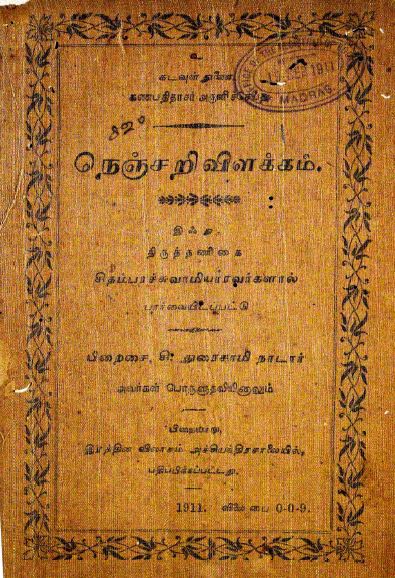 உ
கடவுள் துணை.
கணபதிதாசர் அருளிச்செய்த
நெஞ்சறிவிளக்கம்.
இஃது
திருத்தணிகை
சிதம்பரச்சுவாமியாரவர்களால்
பார்வையிடப்பட்டு
பிறைசை, சி. துரைசாமி நாடார்
அவர்கள் பொருளுதவியினாலும்
இரத்தின விலாசம் அச்சியந்திரசாலையில்,
பதிப்பிக்கப்பட்டது.
1911. விலை பை 0-0-9.
MADRAS